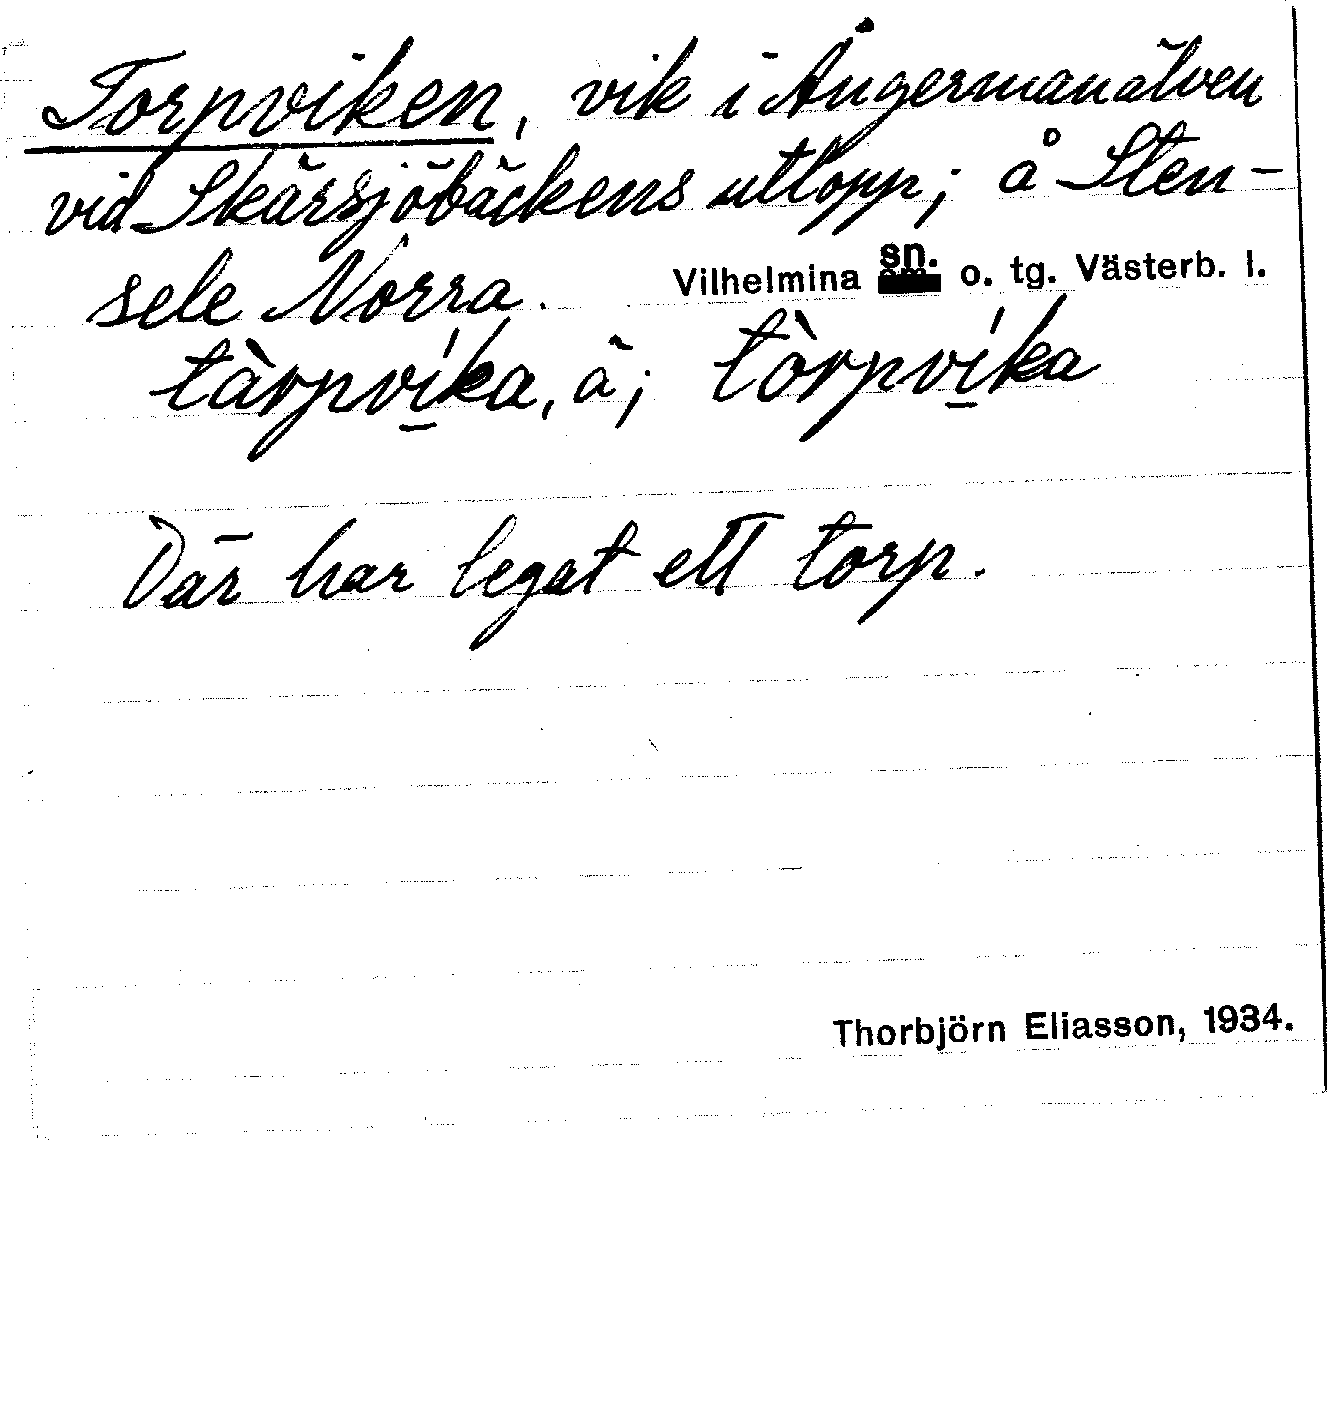 Torpviken, vik i Ångermanälven
vid Skärsjöbäckens utlopp; å Sten-
sele Norra. Vilhelmina sn. o. tg. Västerb. l.
tàrpví̲ka, å; tòrpví̲ka
Där har legat ett torp.
Thorbjörn Eliasson, 1934.